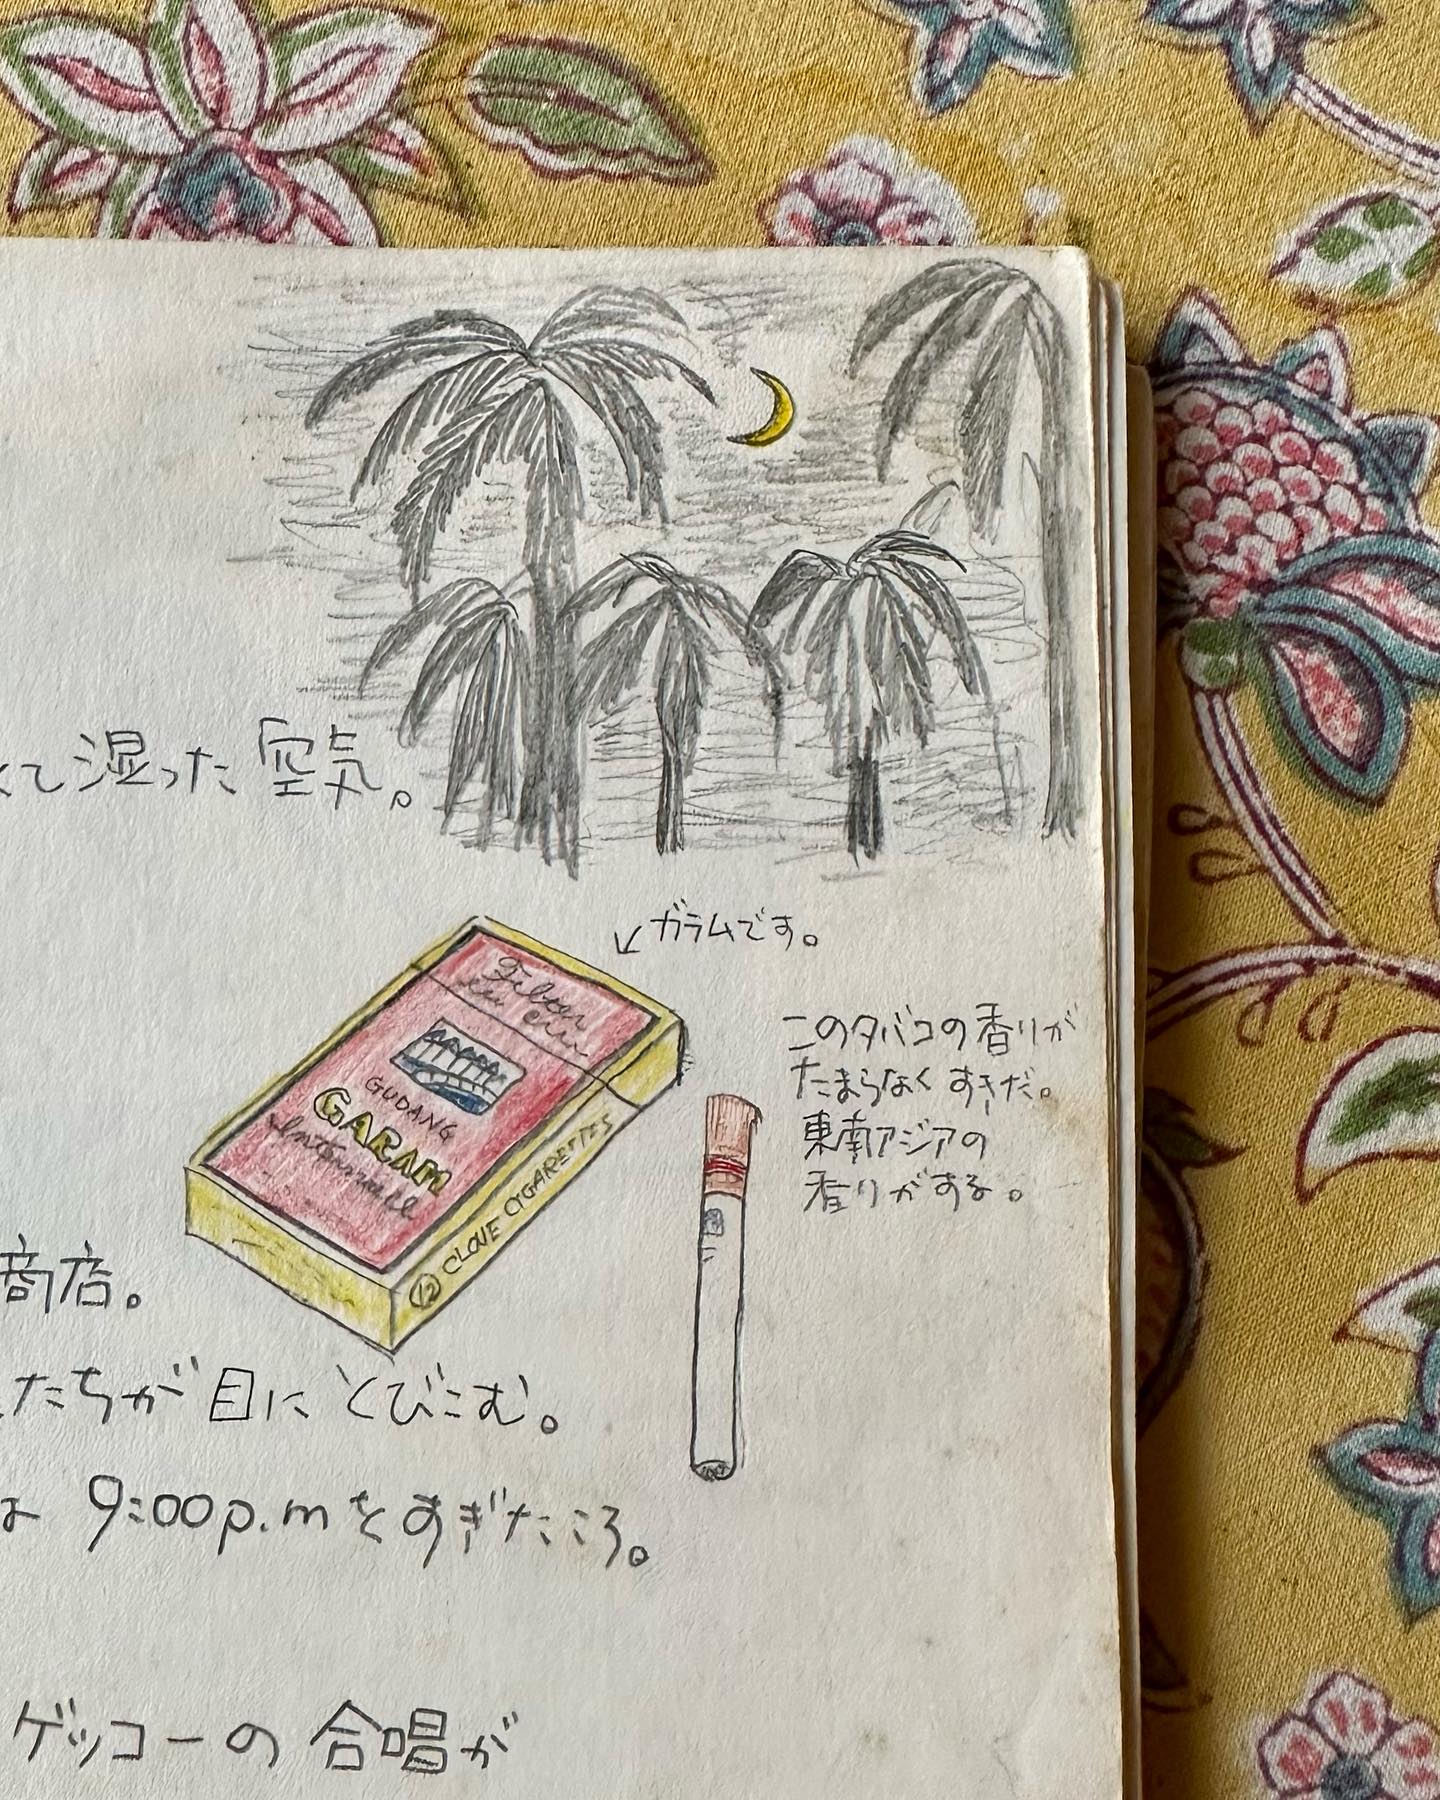 て湿った空気。
ガラムです。
このタバコの香りが
たまらなくすきだ。
東南アジアの
香りがする。
GUDANG
GARAM
12 CLOVE CIGARETTES
商店。
たちが目にとびこむ。
は 9:00p.mをすぎたころ。
ゲッコーの合唱が